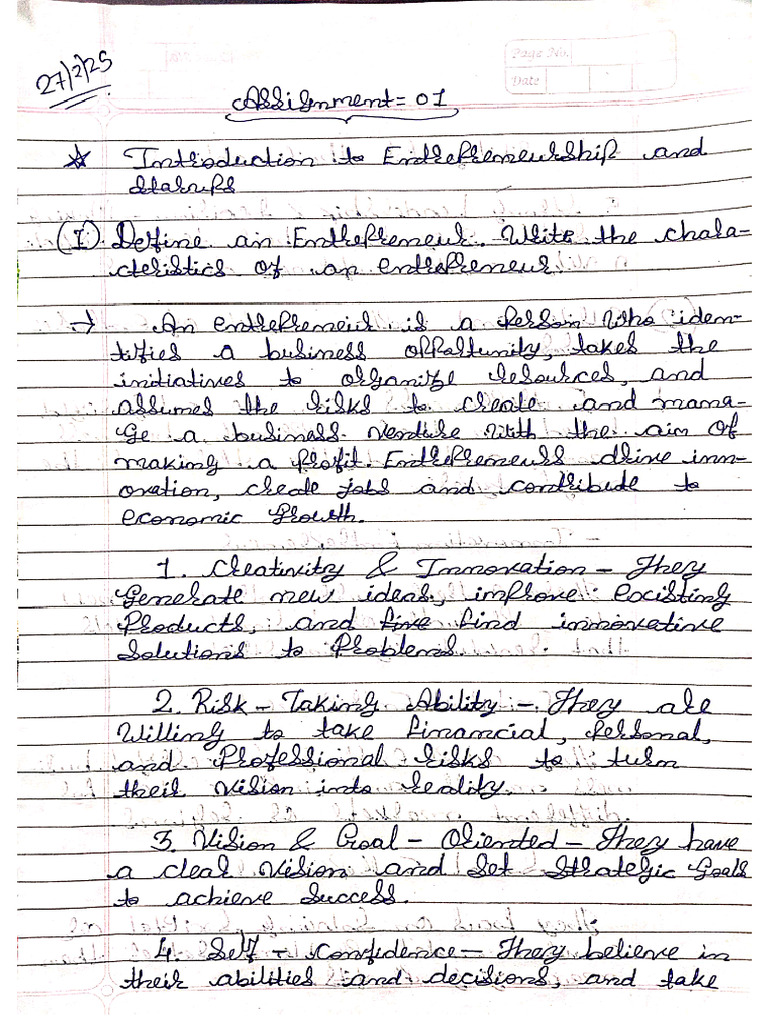 27/2/25
Page No.
Date
Assignment = 01
☆ Introduction to Entrepreneurship and
Starups
(I). Define an Entrepreneur. Write the chara-
cteristics of an entrepreneur
→ An entrepreneur is a person who iden-
tifies a business opportunity, takes the
initiatives to organize resources, and
assumes the risks to create and mana-
ge a business venture with the aim of
making a profit. Entrepreneurs drive inn-
ovation, create jobs and contribute to
economic growth.
1. Creativity & Innovation – They
Generate new ideas, improve existing
Products, and five find innovative
Solutions to Problems.
2. Risk – Taking Ability – They are
Willing to take financial, Personal,
and Professional risks to turn
their vision into reality.
3. Vision & Goal – Oriented – They have
a clear vision and set Strategic Goals
to achieve success.
4. Self – Confidence – They believe in
their abilities and decisions, and take